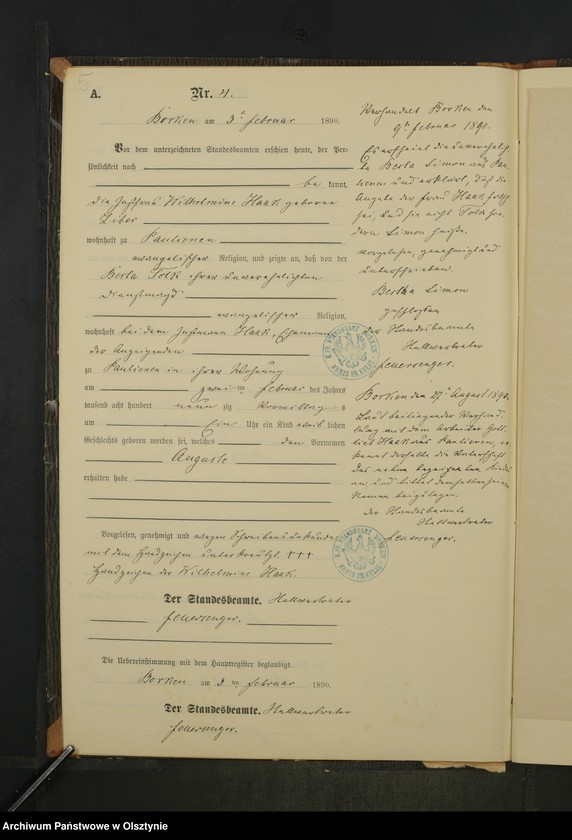 A.
Nr. 4.
Borken am 3. Februar 1890.
Vor dem unterzeichneten Standesbeamten erschien heute, der Per-
sönlichkeit nach
be kannt,
die Instfrau Wilhelmine Haak geborene
Libor
wohnhaft zu Paulienen
evangelischer Religion, und zeigte an, daß von der
Berta Tolk ihrer unverehelichten
Dienstmagd
evangelischer Religion,
wohnhaft bei dem Instmann Haak, Ehemann
der Anzeigenden
zu Paulienen in ihrer Wohnung
am zwei ten Februar des Jahres
tausend acht hundert neun zig Vormittag s
um Ein Uhr ein Kind weib lichen
Geschlechts geboren worden sei, welches den Vornamen
Auguste
erhalten habe
Vorgelesen, genehmigt und wegen Schreibensunkunde
mit dem Handzeichen unterkreuzt. +++
Handzeichen der Wilhelmine Haak.
Der Standesbeamte.
Feuersenger.
Die Uebereinstimmung mit dem Hauptregister beglaubigt.
Borken am 3 ten Februar 1890.
Der Standesbeamte.
Feuersenger.
Verhandelt Borken den
9. Februar 1890.
Es erscheint die unverehelich-
te Berta Limon aus Pau-
lienen und erklärt, daß die
Angabe der Frau Haak falsch
sei, und sie nicht Tolk son-
dern Limon heiße.
vorgelesen, genehmigt und
unterschrieben.
Bertha Limon
geschlossen
der Standesbeamte
Feuersenger.
Borken den 27. August 1890.
Laut beiliegender Verhand-
lung mit dem Arbeiter Gott-
lieb Haak aus Paulienen, er-
kennt derselbe die Vaterschaft
des neben bezeichneten Kindes
an, und bittet demselben seinen
Namen beizulegen.
der Standesbeamte
Feuersenger.
Archiwum Państwowe w Olsztynie